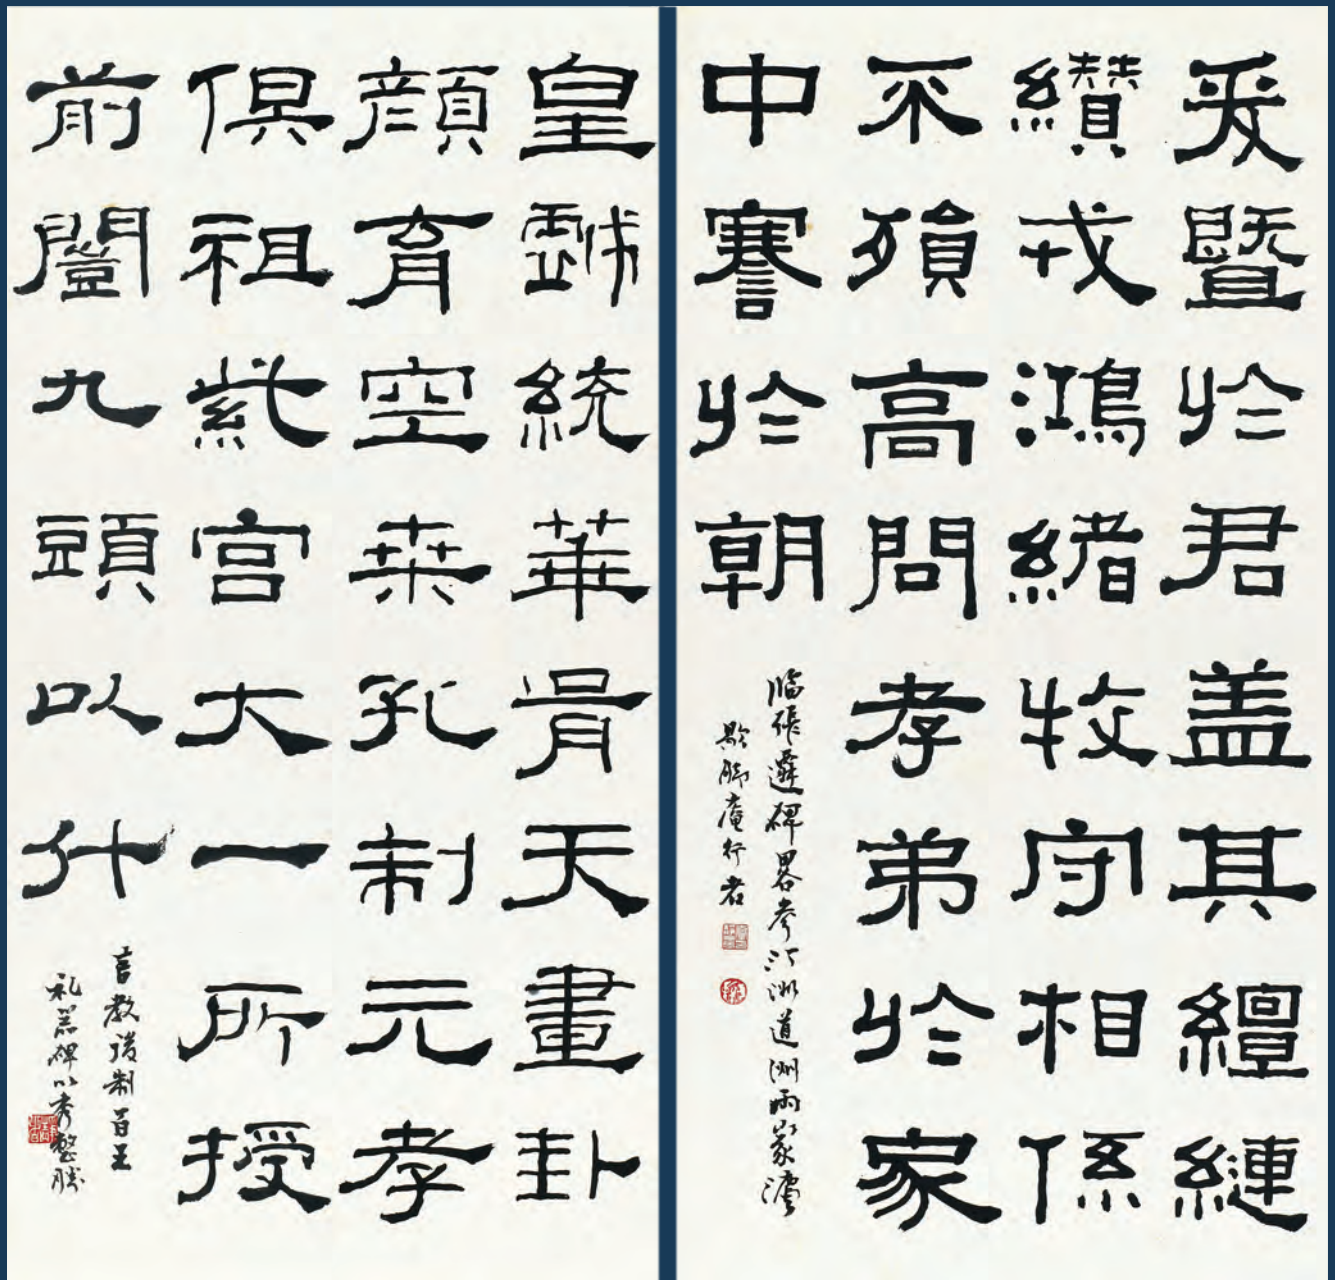 爰暨於君盖其繵縺
纘戎鴻緒牧守相係
不殞高問孝弟於家
中謇於朝
臨張遷碑畧參汀洲道洲兩家灋
歇脚庵行者
皇戲統華胥天畫卦
顏育空桒孔制元孝
俱祖紫宮大一所授
前闓九頭以什
言教後制百王
礼器碑以秀整勝